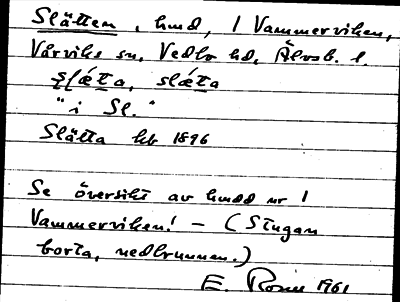 Slätten, hmd, 1 Vammerviken,
Vårviks sn, Vedbo hd, Älvsb. l.
slǽta, slǽta
"i Sl."
Slätta kb 1896
Se översikt av hmdd nr 1
Vammerviken! – (Stugan
borta, nedbrunnen.)
E. 1961